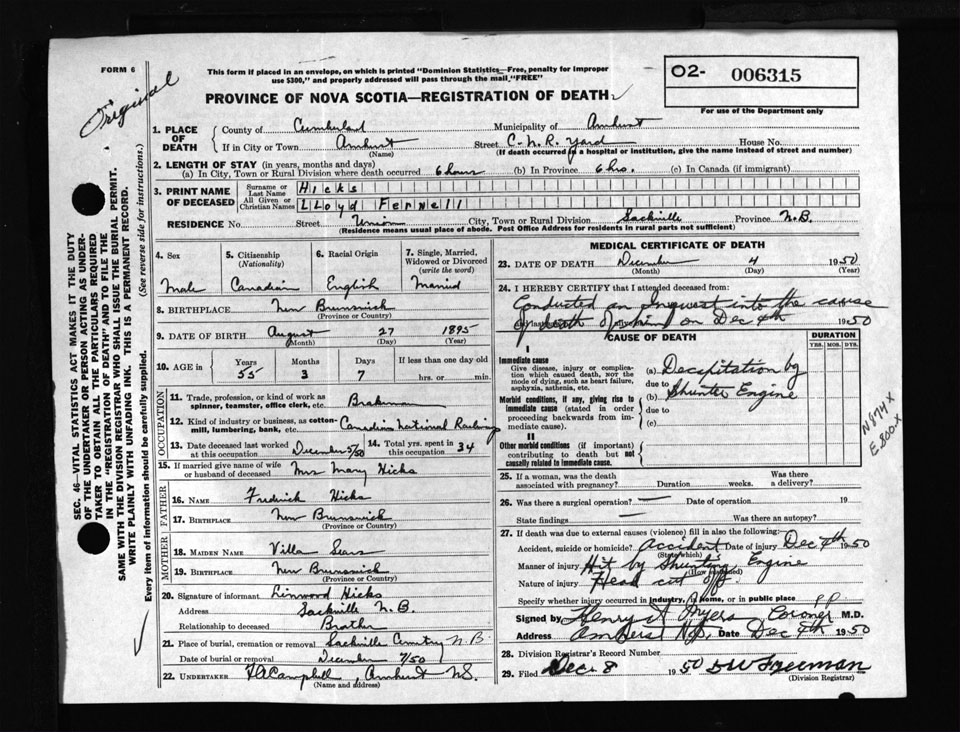 FORM 6
Original
This form if placed in an envelope, on which is printed "Dominion Statistics—Free, penalty for improper
use $300," and properly addressed will pass through the mail "FREE"
PROVINCE OF NOVA SCOTIA—REGISTRATION OF DEATH
O2- 006315
For use of the Department only
SEC. 46—VITAL STATISTICS ACT MAKES IT THE DUTY
OF THE UNDERTAKER OR PERSON ACTING AS UNDER-
TAKER TO OBTAIN ALL THE PARTICULARS REQUIRED
IN THE "REGISTRATION OF DEATH" AND TO FILE THE
SAME WITH THE DIVISION REGISTRAR WHO SHALL ISSUE THE BURIAL PERMIT.
WRITE PLAINLY WITH UNFADING INK. THIS IS A PERMANENT RECORD.
Every item of information should be carefully supplied. (See reverse side for instructions.)
1. PLACE OF DEATH
County of Cumberland Municipality of Amherst
If in City or Town Amherst Street C.N.R. Yard House No.
(Name) (If death occurred in a hospital or institution, give the name instead of street and number)
2. LENGTH OF STAY (in years, months and days)
(a) In City, Town or Rural Division where death occurred 6 hours (b) In Province 6 hrs. (c) In Canada (if immigrant)
3. PRINT NAME OF DECEASED
Surname or Last Name Hicks
All Given or Christian Names LLoyd Fernell
RESIDENCE No. Street Union City, Town or Rural Division Sackville Province N.B.
(Residence means usual place of abode. Post Office Address for residents in rural parts not sufficient)
4. Sex Male
5. Citizenship (Nationality) Canadian
6. Racial Origin English
7. Single, Married, Widowed or Divorced (write the word) Married
8. BIRTHPLACE New Brunswick
(Province or Country)
9. DATE OF BIRTH August 27 1895
(Month) (Day) (Year)
10. AGE in Years 55 Months 3 Days 7 If less than one day old hrs. or min.
OCCUPATION
11. Trade, profession, or kind of work as
spinner, teamster, office clerk, etc. Brakeman
12. Kind of industry or business, as cotton-
mill, lumbering, bank, etc. Canadian National Railway
13. Date deceased last worked at this occupation December 5/50
14. Total yrs. spent in this occupation 34
15. If married give name of wife or husband of deceased Mrs Mary Hicks
FATHER
16. NAME Fredrick Hicks
17. BIRTHPLACE New Brunswick
(Province or Country)
MOTHER
18. MAIDEN NAME Villa Sears
19. BIRTHPLACE New Brunswick
(Province or Country)
20. Signature of informant Linwood Hicks
Address Sackville N.B.
Relationship to deceased Brother
21. Place of burial, cremation or removal Sackville Cemetry N.B
Date of burial or removal December 7/50
22. UNDERTAKER F A Campbell, Amherst N.S.
(Name and address)
MEDICAL CERTIFICATE OF DEATH
23. DATE OF DEATH December 4 1950
(Month) (Day) (Year)
24. I HEREBY CERTIFY that I attended deceased from:
Conducted an Inquest into the cause
of death of him on Dec 4th 1950
CAUSE OF DEATH DURATION
YRS. MOS. DYS.
I
Immediate cause
Give disease, injury or complica-
tion which caused death, not the
mode of dying, such as heart failure,
asphyxia, asthenia, etc.
(a) Decapitation by
due to
Morbid conditions, if any, giving rise to
immediate cause (stated in order
proceeding backwards from im-
mediate cause).
(b) Shunter Engine
due to
(c)
II
Other morbid conditions (if important)
contributing to death but not
causally related to immediate cause.
N874X
E.800.X
25. If a woman, was the death
associated with pregnancy? Duration weeks. Was there a delivery?
26. Was there a surgical operation? — Date of operation 19
State findings — Was there an autopsy?
27. If death was due to external causes (violence) fill in also the following:
Accident, suicide or homicide? Accident Date of injury Dec 4th 1950
(State which)
Manner of injury Hit by Shunting Engine
(How sustained)
Nature of injury Head cut off
Specify whether injury occurred in industry, in home, or in public place P P
Signed by Henry A Myers Coroner M.D.
Address Amherst N.S. Date Dec 4th 1950
28. Division Registrar's Record Number
29. Filed Dec 8 1950 D W Freeman
(Division Registrar)